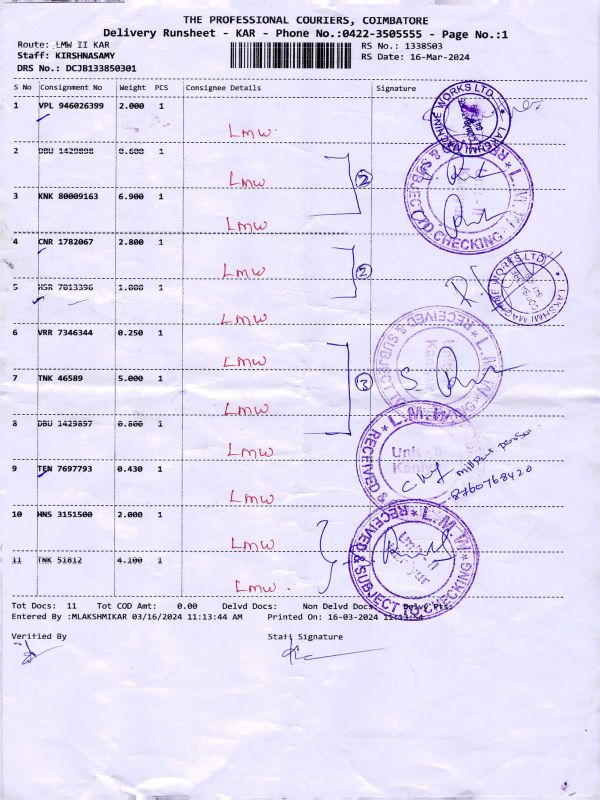 THE PROFESSIONAL COURIERS, COIMBATORE
Delivery Runsheet - KAR - Phone No.:0422-3505555 - Page No.:1
Route: LMW II KAR RS No.: 1338503
Staff: KIRSHNASAMY RS Date: 16-Mar-2024
DRS No.: DCJB133850301
S No Consignment No Weight PCS Consignee Details Signature
1 VPL 946026399 2.000 1
LMW
2 DBU 1429898 0.600 1
LMW
2
3 KNK 80009163 6.900 1
LMW
4 CNR 1782067 2.800 1
LMW
2
5 HSR 7013396 1.000 1
LMW
6 VRR 7346344 0.250 1
LMW
7 TNK 46589 5.000 1
3
LMW
8 DBU 1429897 0.800 1
LMW
9 TEN 7697793 0.430 1
8760768420
LMW
10 HNS 3151500 2.000 1
LMW
11 TNK 51812 4.100 1
LMW
LAKSHMI MACHINE WORKS LTD.
L.M.W. RECEIVED & SUBJECT TO CHECKING
LAKSHMI MACHINE WORKS LTD.
L.M.W. RECEIVED & SUBJECT
L.M.W. RECEIVED &
Unit
L.M.W. RECEIVED & SUBJECT TO CHECKING
Tot Docs: 11 Tot COD Amt: 0.00 Delvd Docs: Non Delvd Docs: Delvd Pts:
Entered By :MLAKSHMIKAR 03/16/2024 11:13:44 AM Printed On: 16-03-2024 11:13:54
Verified By Staff Signature